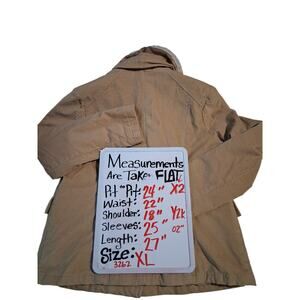 Measurements
Are Taken FLAT
Pit "Pit: 24" X2
Waist: 22"
Shoulder: 18" Y2k
Sleeves: 25" 02"
Length: 27"
Size: XL
3262